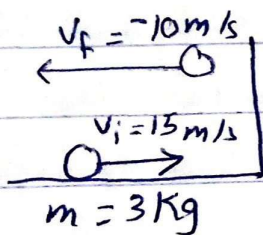 V_f = -10 m/s
V_i = 15 m/s
m = 3 Kg